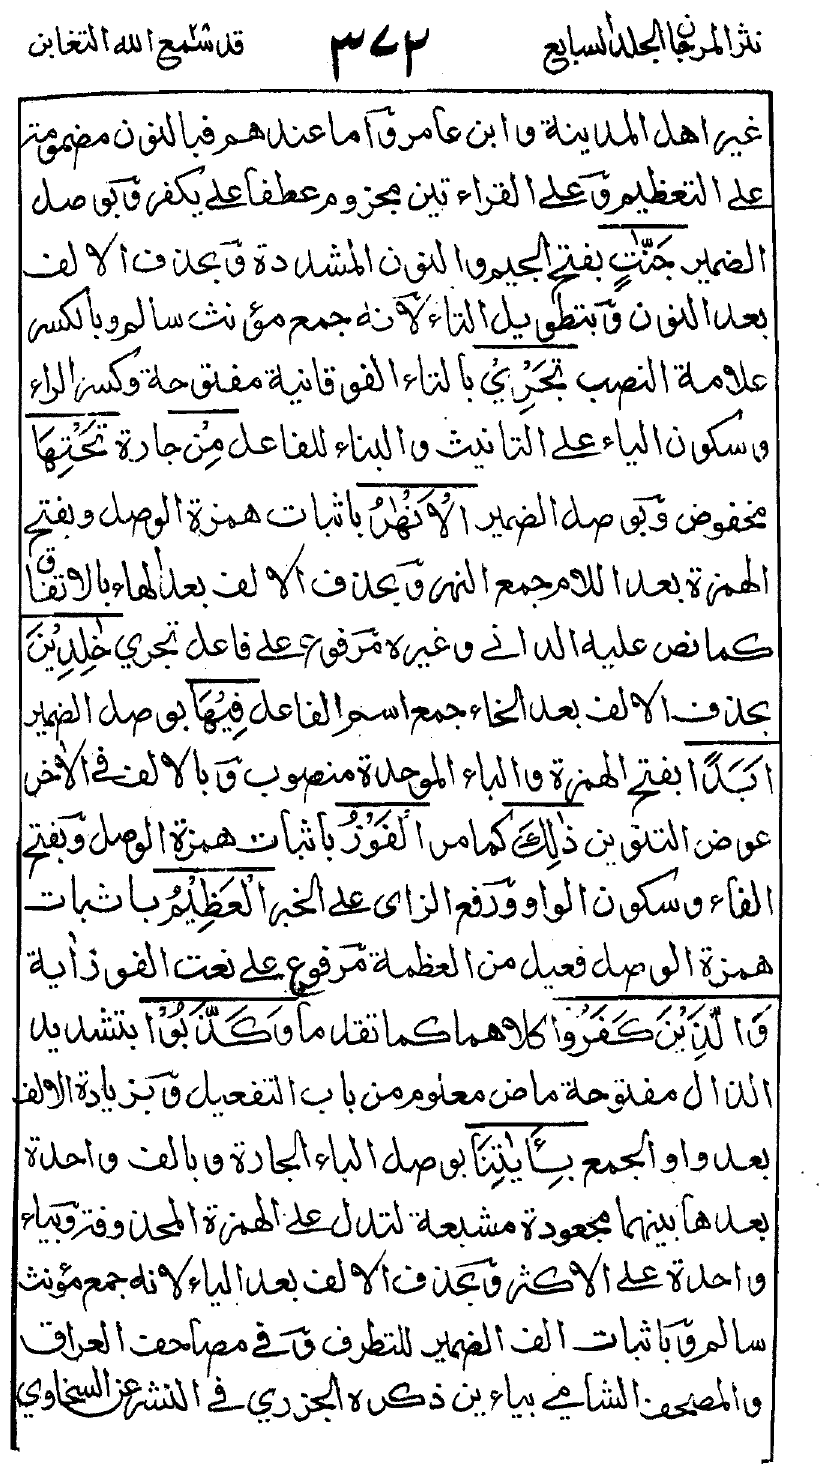 نثر المرجان الجلد السابع
٣٧٢
قد سمع الله التغابن
غير اهل المدينة وابن عامر وَاما عندهم فبالنون مضمومة
على التعظيم وَعلى القراءتين مجزوم عطفا على يكفر وَبوصل
الضمير جَنّٰتٍ بفتح الجيم والنون المشددة وَبحذف الالف
بعد النون وَبتطويل التاء لانه جمع مؤنث سالم وبالكسر
علامة النصب تَجْرِيْ بالتاء الفوقانية مفتوحة وكسر الراء
وسكون الياء على التانيث والبناء للفاعل مِنْ جارة تَحْتِهَا
مخفوض وَبوصل الضمير الْاَنْهٰرُ باثبات همزة الوصل وبفتح
الهمزة بعد اللام جمع النهر وَبحذف الالف بعد الهاء بالاتفاق
كما نص عليه الدانے وغيره مَرفوع على فاعل تجري خٰلِدِيْنَ
بحذف الالف بعد الخاء جمع اسم الفاعل فِيْهَا بوصل الضمير
اَبَدًا بفتح الهمزة والباء الموحدة منصوب وَبالالف في الاٰخر
عوض التنوين ذٰلِكَ كما مر الْفَوْزُ باثبات همزة الوصل وَبفتح
الفاء وسكون الواو وَرفع الزاى على الخبر الْعَظِيْمُ باثبات
همزة الوصل فعيل من العظمة مَرفوع على نعت الفوز اٰية
وَالَّذِيْنَ كَفَرُوْا كلاهما كما تقدما وَكَذَّبُوْا بتشديد
الذال مفتوحة ماض معلوم من باب التفعيل وَبزيادة الالف
بعد واو الجمع بِـَٔايٰتِنَا بوصل الباء الجارة وبالف واحدة
بعدها بينهما مجعودة مشبعة لتدل على الهمزة المحذوفة وَبياء
واحدة على الاكثر وَبحذف الالف بعد الياء لانه جمع مؤنث
سالم وَباثبات الف الضمير للتطرف وَفي مصاحف العراق
والمصحف الشامي بياءين ذكره الجزري في النشر عن السخاوي